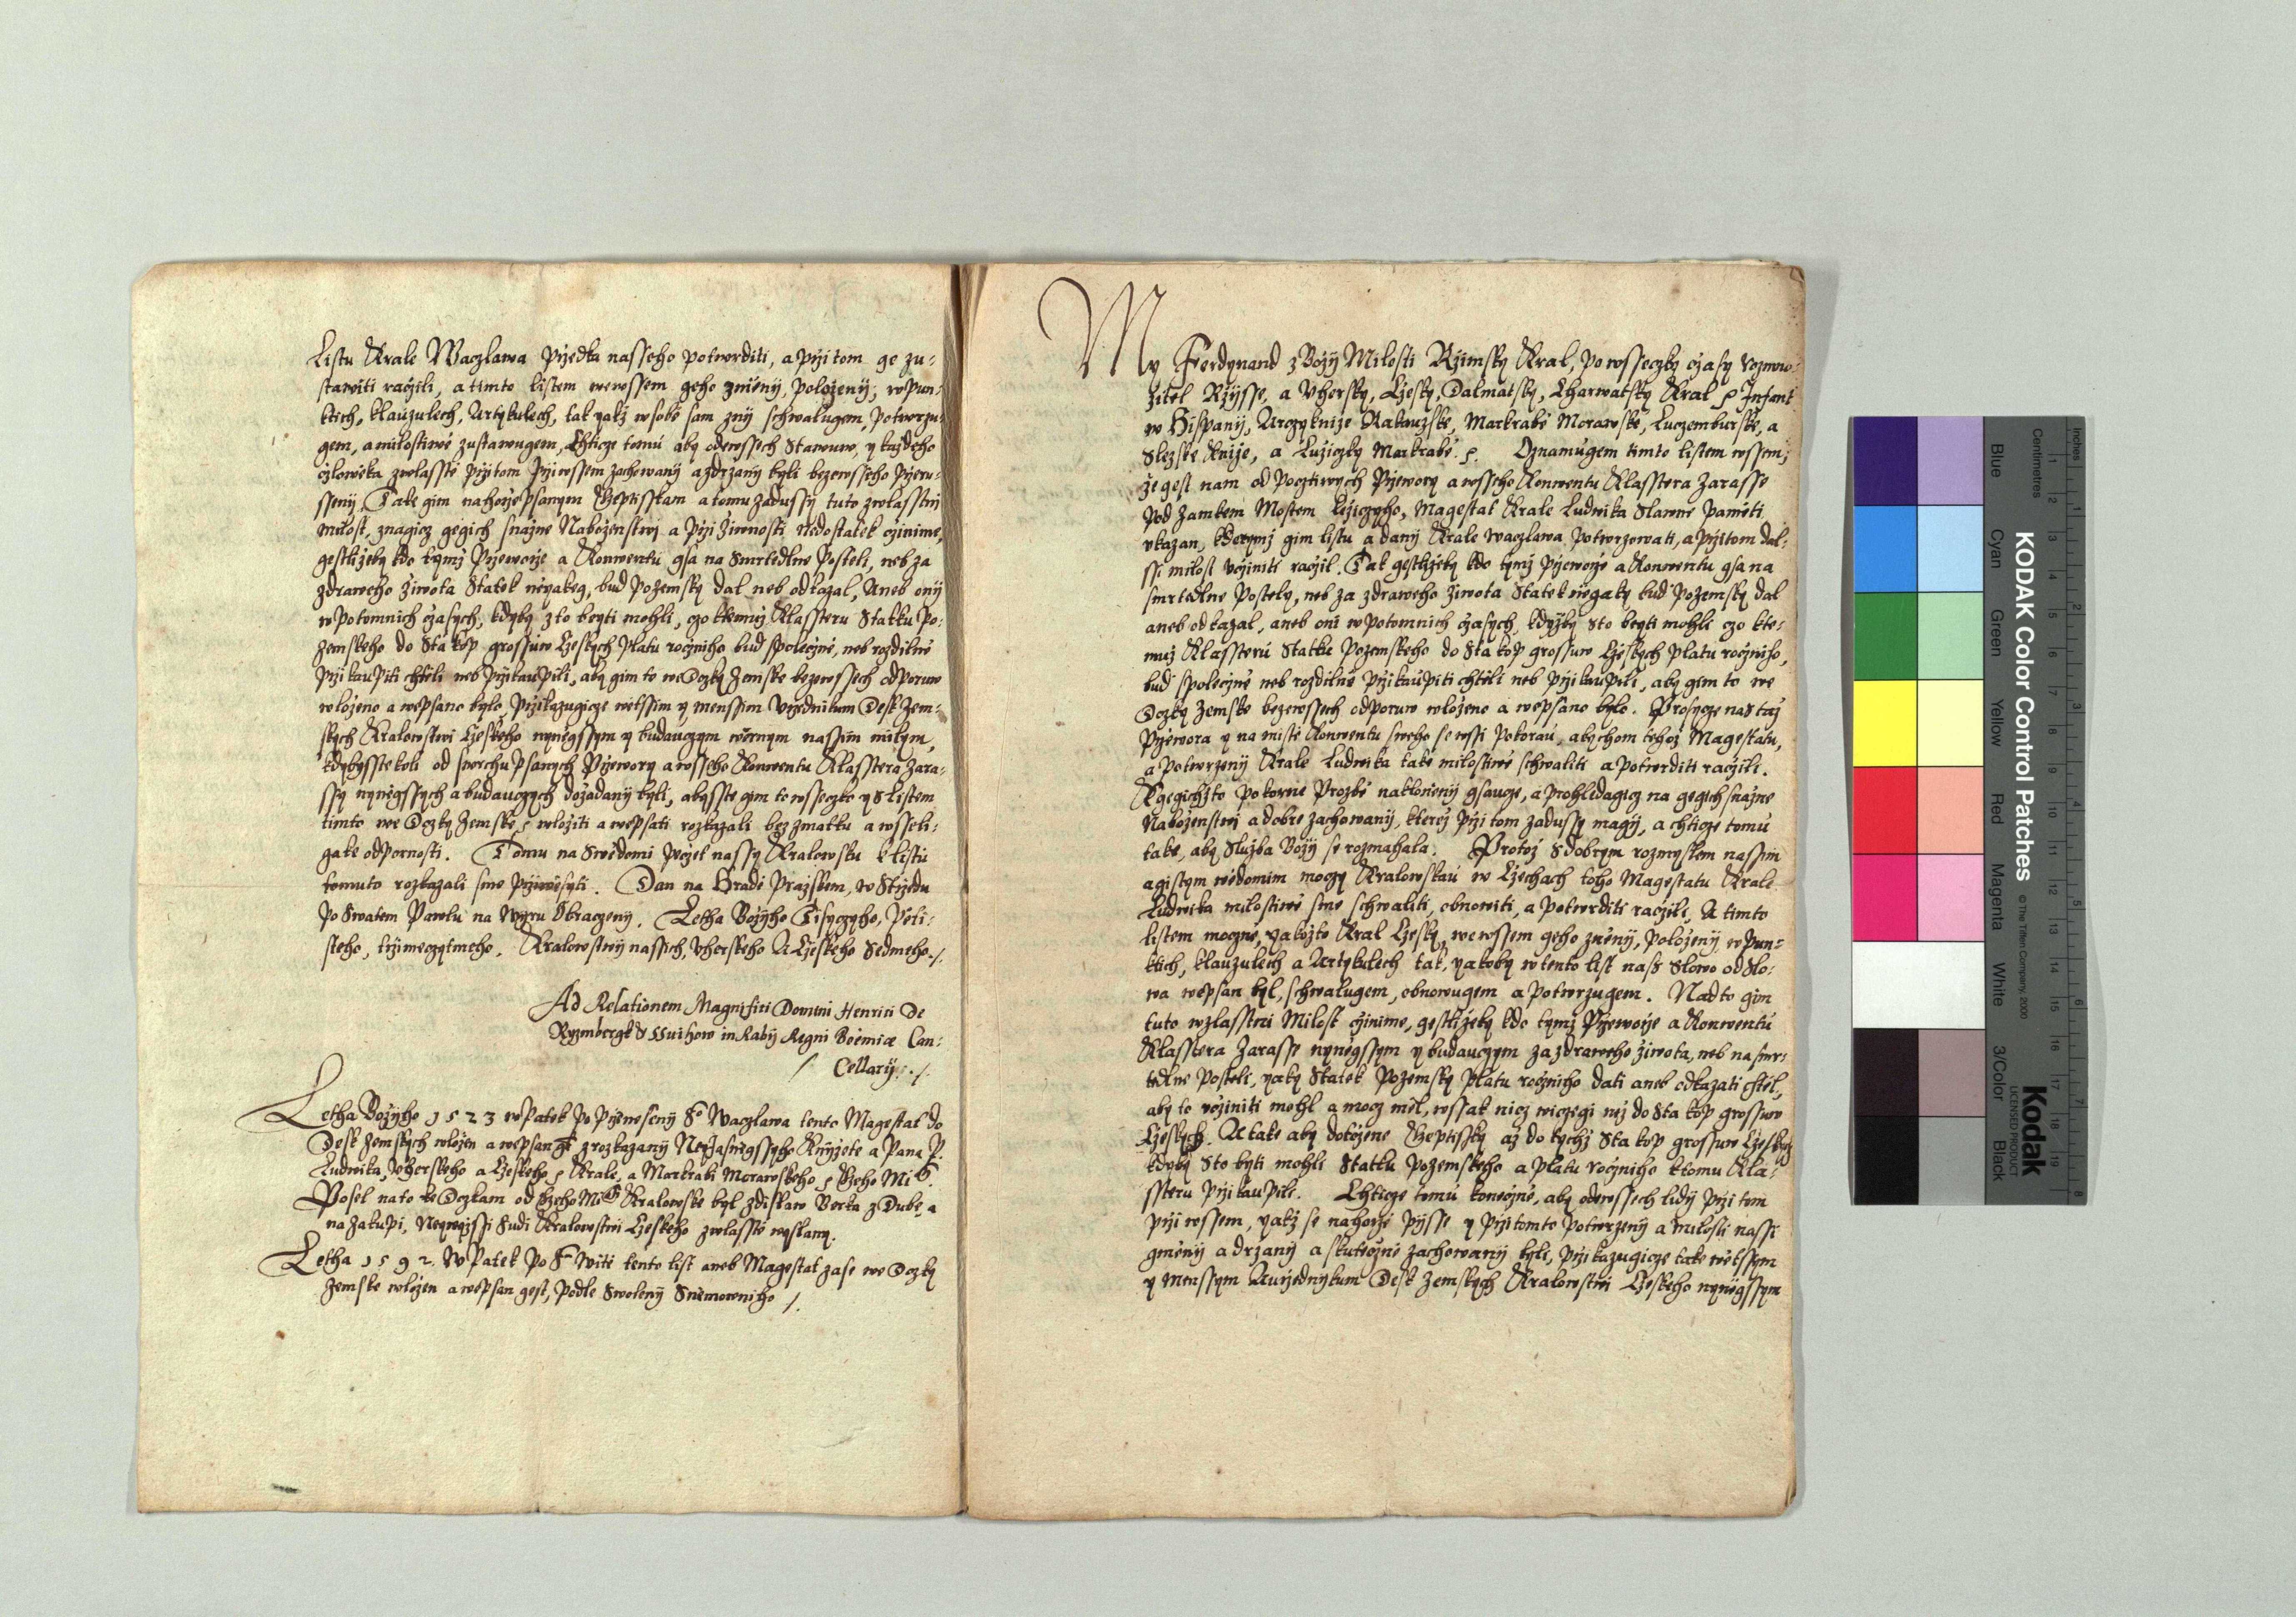 Listu Krale Waczlawa Przedka nasseho potwrditi, a przi tom ge zu-
stawiti raczili, a timto listem wewssem geho zněnij, položenij, w Pun-
ktich, klauzulech, Artykulech, tak yakž w sobě sam znij schwalugem, Potwrzu-
gem, a milostiwě zustawugem, Chticze tomu aby odewssech Stawuw, y každeho
czlowěka zwlasstě przitom przi wssem zachowanij a drzanij byli bezewsseho Przeru-
ssenij. Take gim nahorzepsanym Geptisskam a tomu zadussy tuto zwlasstnij
milost, znagicz gegich snažne Naboženstwj a przi žiwnosti nedostatek czinime,
gestližeby kdo tymž Przeworze a Konwentu gsa na Smrtedlne Posteli, neb za
zdraweho žiwota Statek niyakeg, bud Pozemsky dal neb odkazal, Aneb onij
w potomnich czasych, kdyby z to beyti mohli, czo kttemuž Klassteru Statku Po-
zemskeho do Sta kop grossuw Czeskych Platu rocžniho bud spolecžně, neb rozdilně
Przikaupiti chtěli neb przikaupili, aby gim to we Dczky Zemske bezewssech odporuw
wloženo a wepsano bylo Przikazugicze wětssim y menssim Urzednikum Desk Zem-
skych Kralowstwi Czeskeho nyněgssym y budauczym wěrnym nassim milym,
kdybysste koli od swrchu psanych Przewory a wsseho Konwentu Klasstera Zara-
ssy nyněgssych a budauczych dožadanij byli, abysste gim to wsseczko y s listem
timto we Dczky Zemske wložiti a wepsati rozkazali bez zmatku a wsseli-
gake odpornosti. Tomu na Swědomi Peczet nassy Kralowsku k listu
tomuto rozkazali sme przywěsyti. Dan na Hradě Pražskem, w Strzedu
Po Swatem Pawlu na Wijru Obraczeny. Letha Božijho Tisyczyho, Pěti-
steho, trzimeczytmeho. Kralowstwij nassich, Vherskeho A Czeskeho Sedmeho./.
Ad Relationem Magnifici Domini Henrici De
Ryzmbergk & Swihow in Raby Regni Boemiæ Can-
Cellarij ./.
Letha Božijho 1523 w Patek Po Przenesenij So Waczlawa tento Magestat do
Desk Zemskych wložen a wepsan gt z rozkazanij Neyjasněgssyho Knijžete a Pana P.
Ludwika, Vherskeho a Czeskeho Krale, a Markrabi Morawskeho Geho Mti.
Posel na to ke Dczkam od Geho Mti Kralowske byl Zdislaw Berka z Dube, a
na Zakupi, Neywyžssi Sudi Kralowstwi Czeskeho zwlasstě wyslany.
Letha 1592. W Patek Po S Witě tento list aneb Magestat zase we Dczky
Zemske wložen a wepsan gest, Podle Swolenij Sněmowniho ./.
My Ferdynand z Božij Milosti Rzimsky Kral, po wsseczky czasy rozmno-
žitel Rzijsse, a Vhersky, Czesky, Dalmatsky, Charwatsky Kral Infant
w Hispanij, Arczykniže Rakauzske, Markrabě Morawske, Luczemburske, a
Slezske Kniže, a Lužiczky Markrabě. Oznamugem timto listem wssem,
že gest nam od Pocztiwych Przewory a wsseho Konwentu Klasstera Zarasse
Pod Zamkem Mostem ležiczyho, Magestat Krale Ludwika Slawne Paměti
vkazan, kterymž gim listu a danij Krale Waczlawa Potwrzowati, a przitom dal-
ssi milost vcziniti raczil. Tak gestližeby kdo tymž Przeworze a Konwentu gsa na
smrtedlne Postely, neb za zdraweho žiwota Statek niegaky bud Pozemsky dal
aneb odkazal, aneb oni w potomnich czasych, kdyžby s to beyti mohli czo kte-
muž Klassteru Statku Pozemskeho do Sta kop grossuw Czeskych Platu rocžniho,
bud spolecžně neb rozdilně Przikaupiti chtěli neb przikaupili, aby gim to we
Dczky Zemske bezewssech odporuw wloženo a wepsano bylo. Prosycze nas taž
Przewora y na mistě Konwentu sweho se wssi Pokorau, abychom tehož Magestatu,
a Potwrzenij Krale Ludwika také milostiwě schwaliti a Potwrditi raczili.
K gegichžto Pokorne Prozbě naklonenij gsaucze, a prohledagicz na gegich snažne
Naboženstwj a dobre zachowanij, kterež przi tom zadussy magij, a chticze tomu
take, aby Služba Božij se rozmahala. Protož s dobrym rozmyslem nassim
a gistym wědomim moczy Kralowskau w Czechach toho Magestatu Krale
Ludwika milostiwě sme schwaliti, obnowiti, a potwrditi raczili, A timto
listem mocně, yakožto Kral Czesky, we wssem geho zněnij, položenij, w Pun-
ktich, klauzulech a Artykulech tak, yakoby w tento list nass Slowo od Slo-
wa wepsan byl, schwalugem, obnowugem a potwrzugem. Nadto gim
tuto zwlasstni Milost czinime, gestližeby kdo tymž Przeworze a Konwentu
Klasstera Zarasse nyněgssym y budauczym za zdraweho žiwota, neb na smr-
tedlne Posteli, yaky Statek Pozemsky Platu rocžniho dati aneb odkazati chtěl,
aby to vcziniti mohl a mocz měl, wssak nicz wiczegi než do Sta kop grossuw
Czeskych. A také aby dotčene Geptissky až do tychž Sta kop grossuw Czeskych
kdyby s to byti mohli Statku Pozemskeho a Platu rocžniho k tomu Kla-
ssteru przikaupili. Chticze tomu konecžně, aby odewssech lidij przi tom
przi wssem, yakž se nahorze pijsse y przi tomto Potwrzenij a milosti nassi
gměnij a drzanij a skutecžně zachowanij byli, Przikazugicze také wětssym
y Menssym Aurzednykum Desk Zemskych Kralowstwi Czeskeho nyněgssym
KODAK Color Control Patches
© The Tiffen Company, 2000
Kodak
LICENSED PRODUCT
Blue Cyan Green Yellow Red Magenta White 3/Color Black
Centimetres
Inches